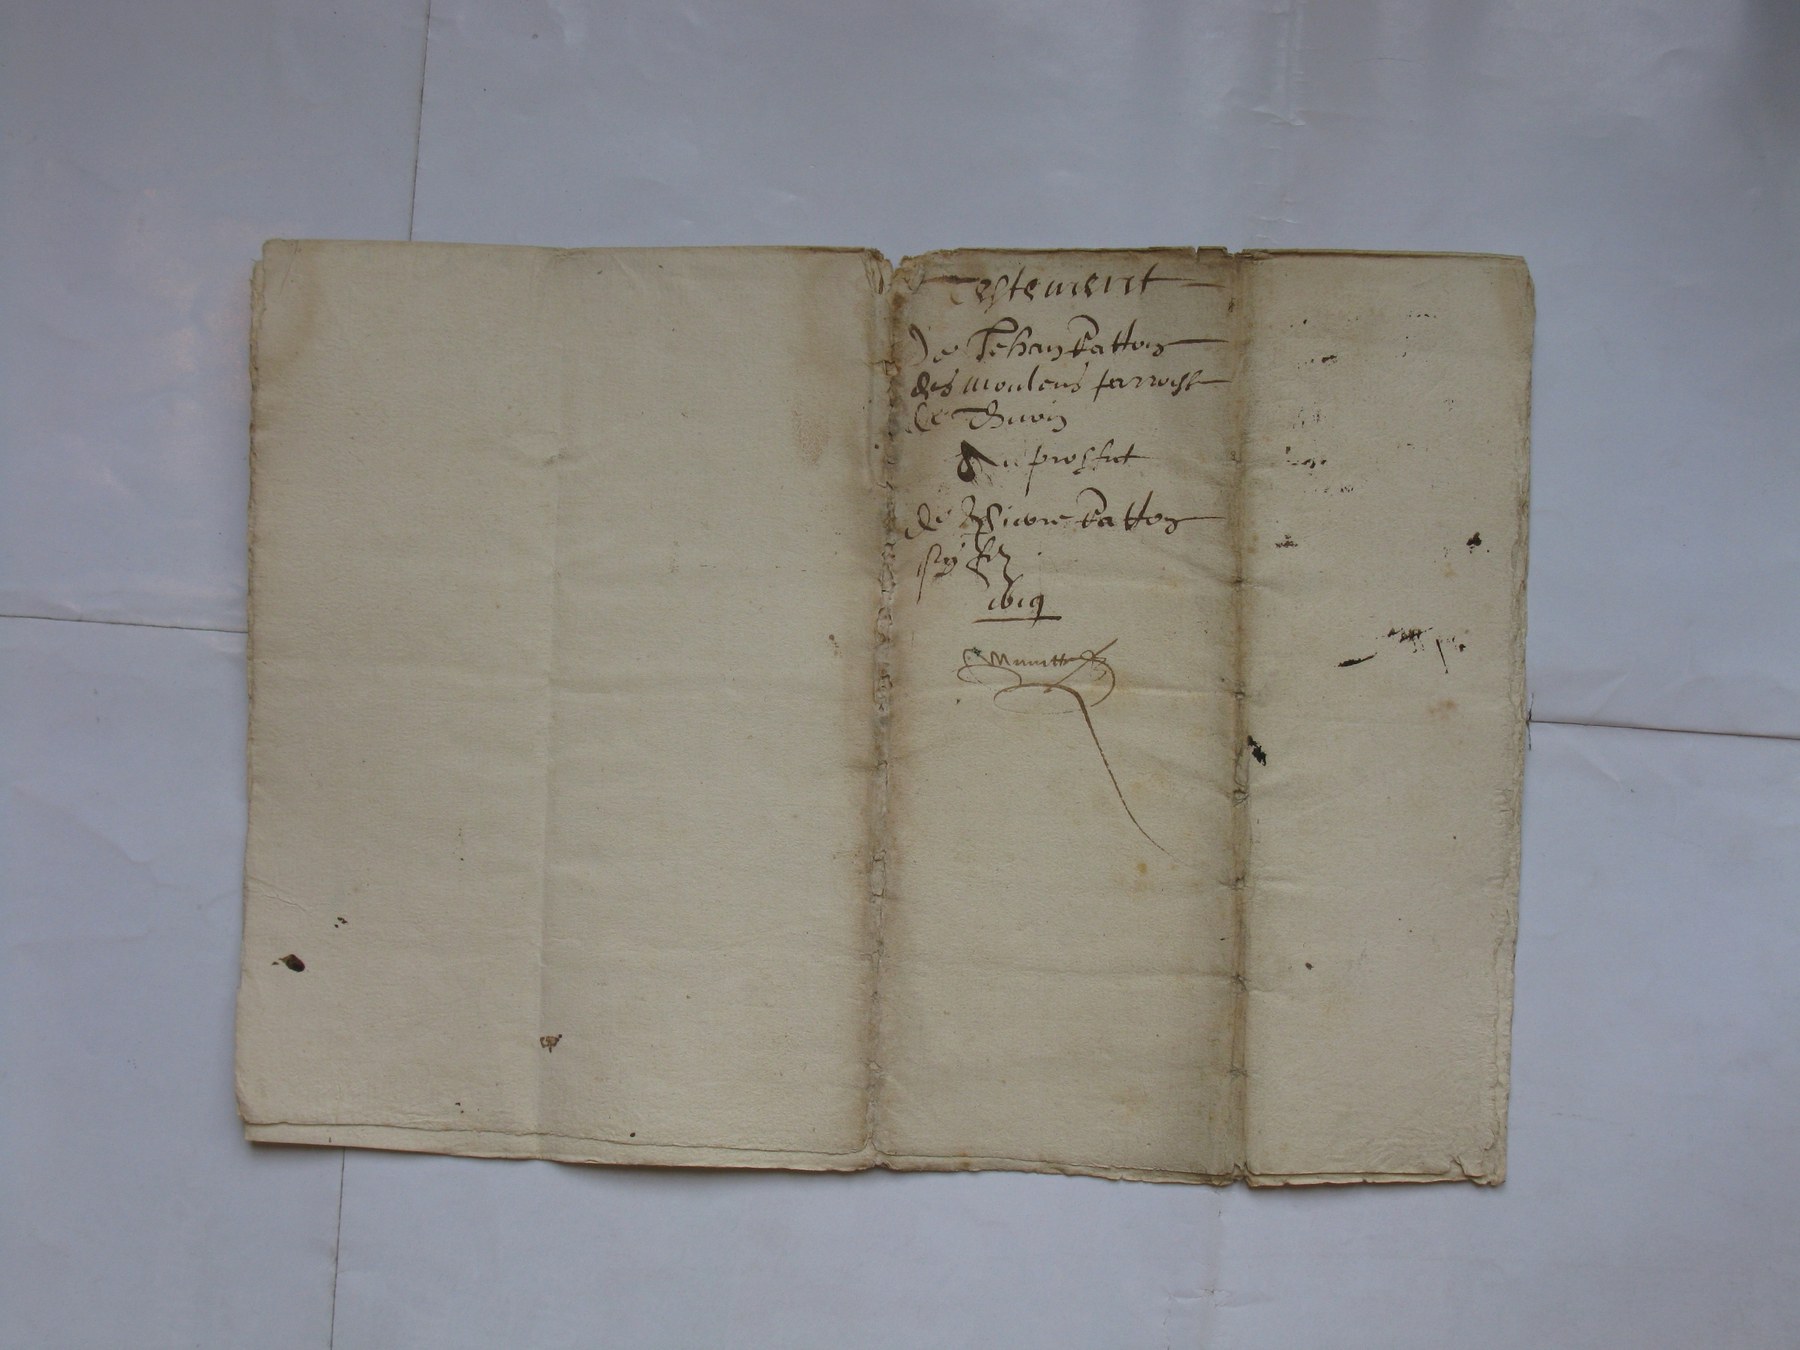 Testement
de Jehan Patton
des moulens parroisse
de Thuoin
Au proffict
de Pierre Patton
son filz
1619